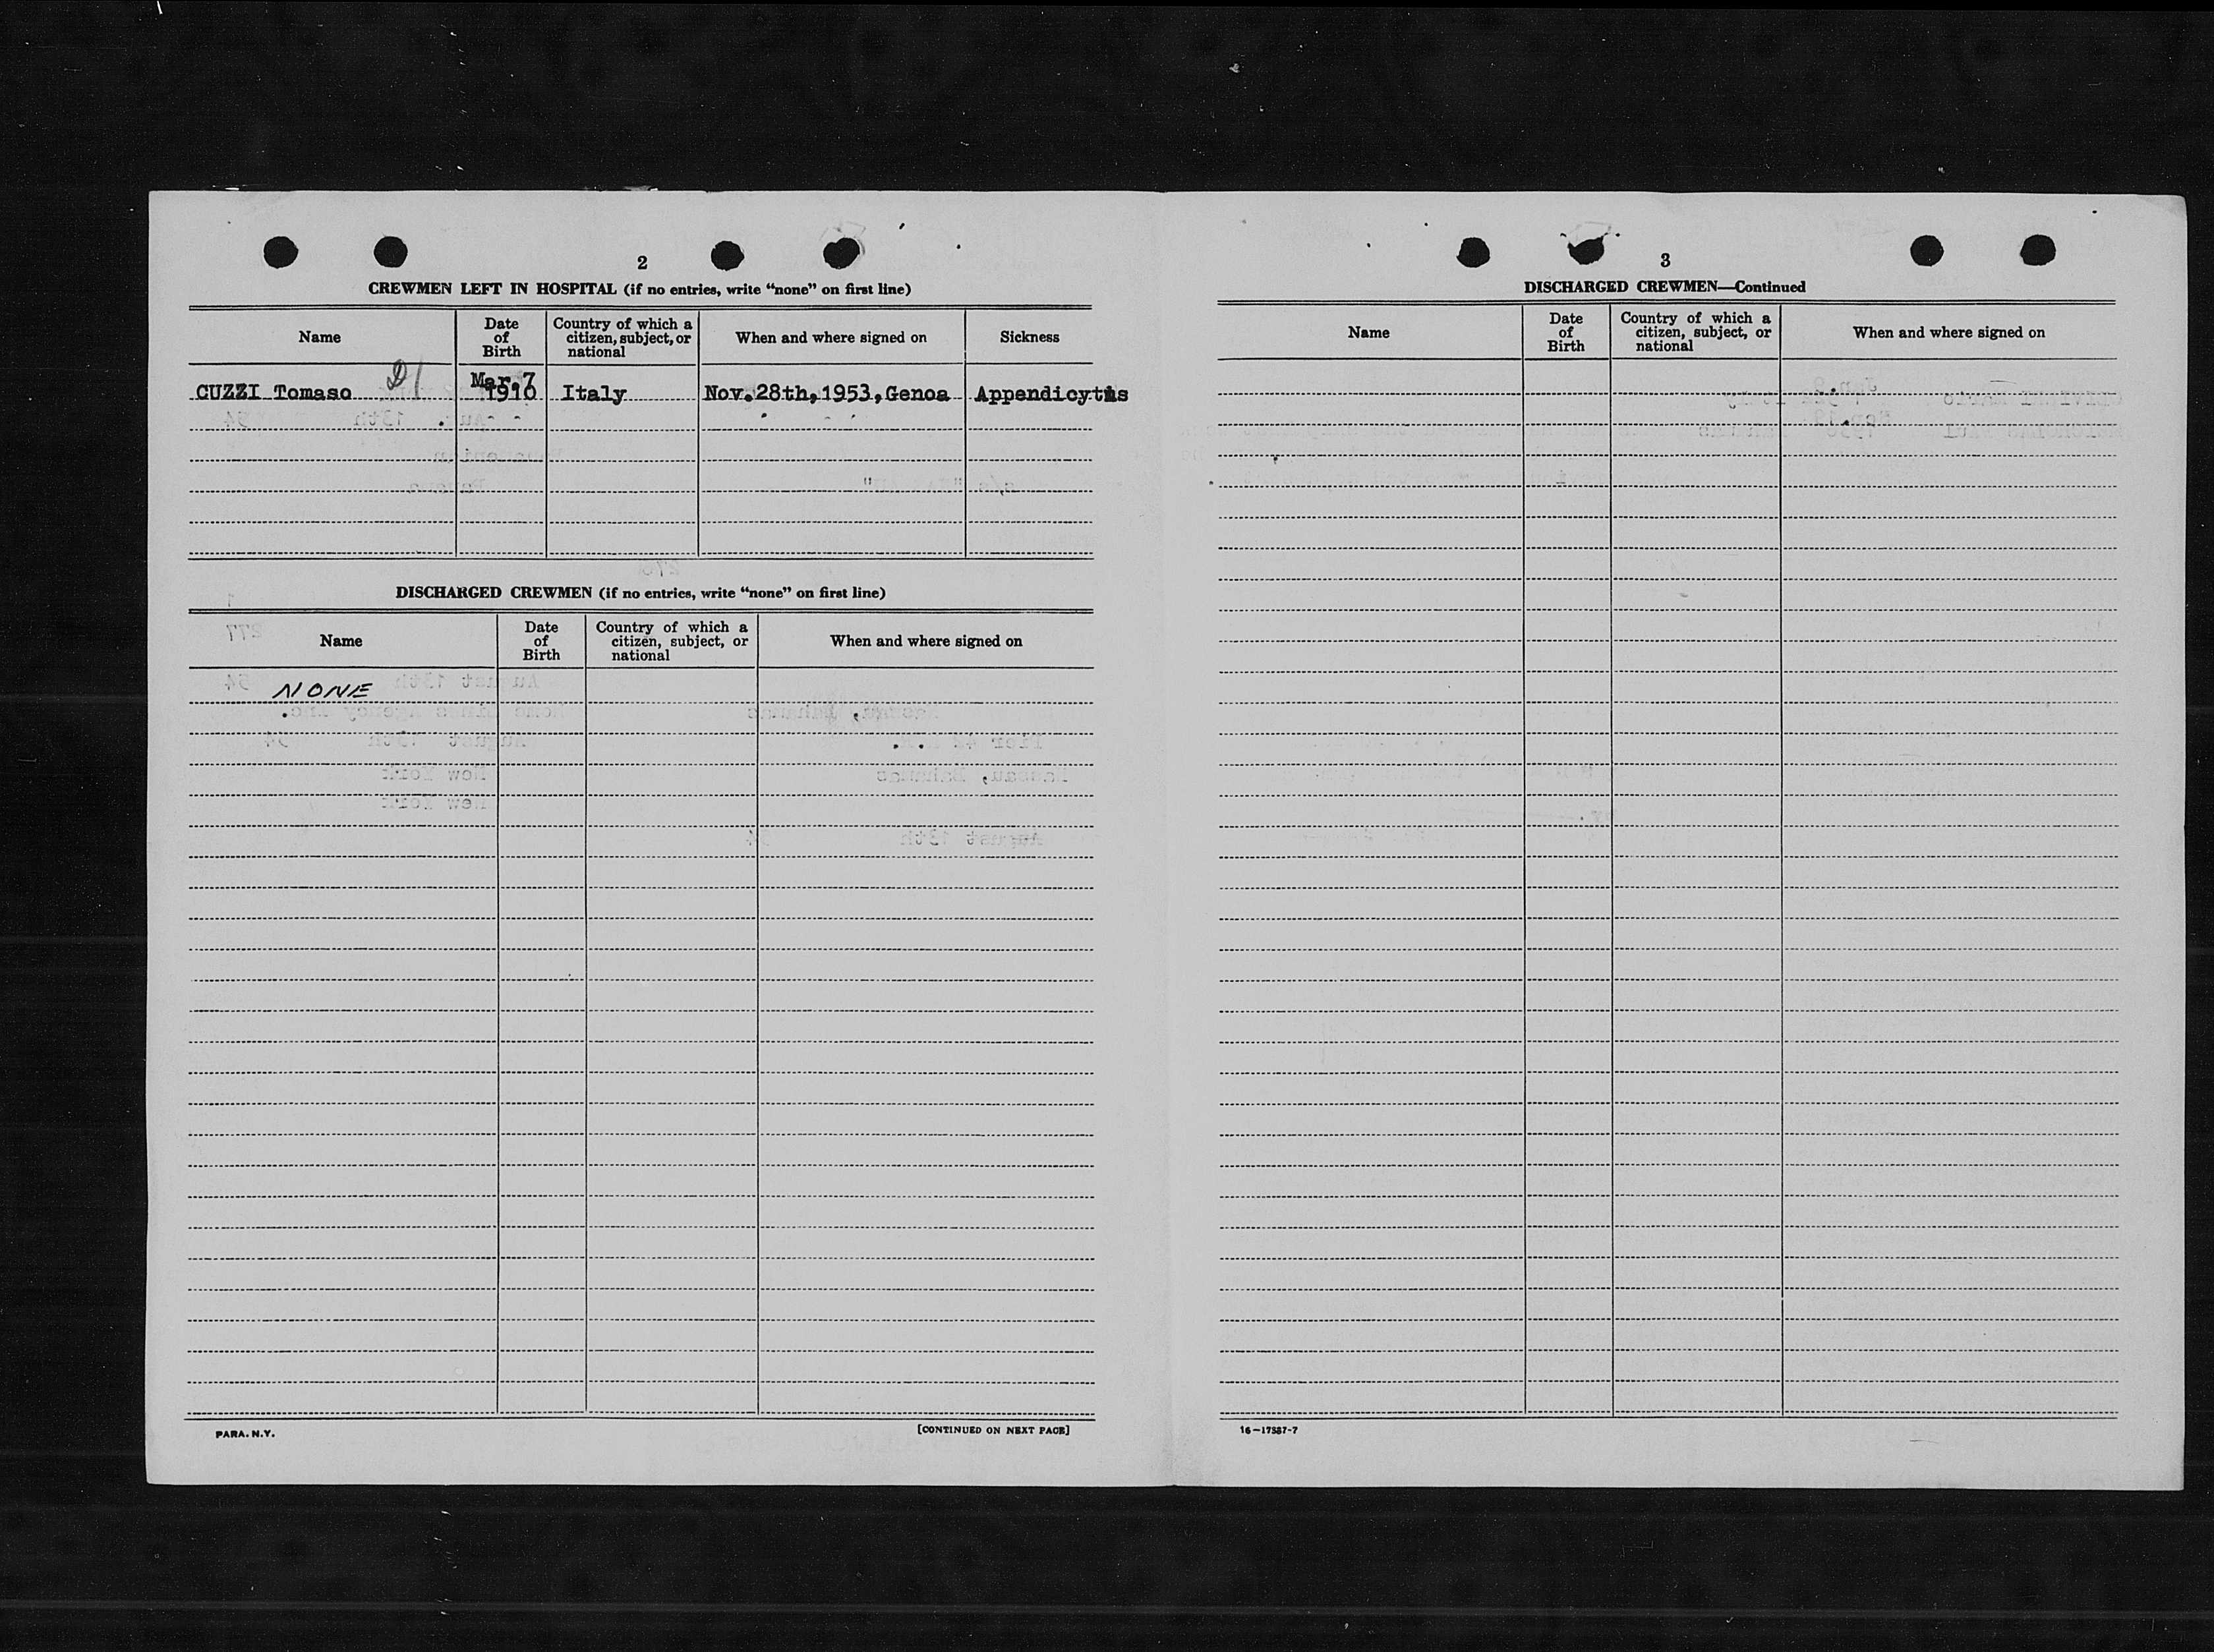 2
CREWMEN LEFT IN HOSPITAL (if no entries, write “none” on first line)
Name
Date of Birth
Country of which a citizen, subject, or national
When and where signed on
Sickness
CUZZI Tomaso Mar.7 1910 Italy Nov.28th,1953,Genoa Appendicytis
DISCHARGED CREWMEN (if no entries, write “none” on first line)
Name
Date of Birth
Country of which a citizen, subject, or national
When and where signed on
NONE
PARA. N.Y.
[CONTINUED ON NEXT PAGE]
3
DISCHARGED CREWMEN—Continued
Name
Date of Birth
Country of which a citizen, subject, or national
When and where signed on
16—17587-7